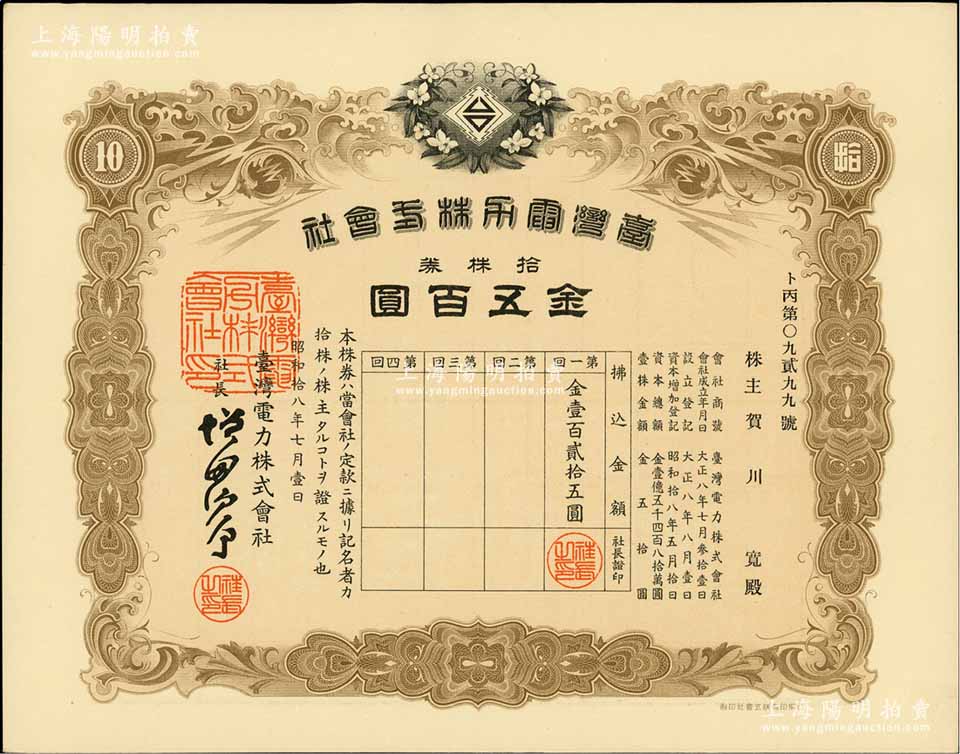 上海陽明拍賣
www.yangmingauction.com
10
拾
臺灣電力株式會社
拾株券
金五百圓
ト丙第〇九貳九九號
株主賀川寬殿
會社商號 臺灣電力株式會社
會社成立年月日 大正八年七月參拾壹日
設立登記 大正八年八月壹日
資本增加登記 昭和拾八年五月拾日
資本總額 金壹億五千四百八拾萬圓
壹株金額 金五拾圓
拂込金額 社長證印
第一回 金壹百貳拾五圓
社長之印
第二回
第三回
第四回
本株券ハ當會社ノ定款ニ據リ記名者カ
拾株ノ株主タルコトヲ證スルモノ也
昭和拾八年七月壹日
臺灣電力株式會社
社長
臺灣電力株式會社之印
社長之印
上海陽明拍賣
www.yangmingauction.com
上海陽明拍賣
www.yangmingauction.com